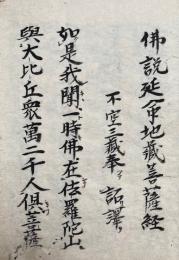 佛説延命地藏菩薩経
不空三藏奉詔譯
如是我聞一時佛在佉羅陀山
與大比丘衆萬二千人俱菩薩